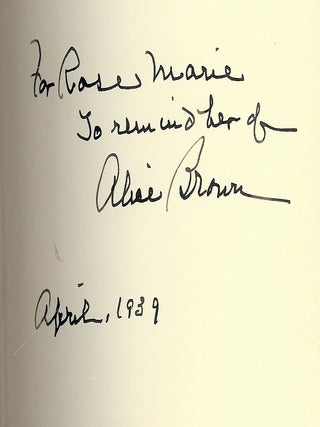 For Rose Marie
To remind her of
Alice Brown
April, 1939